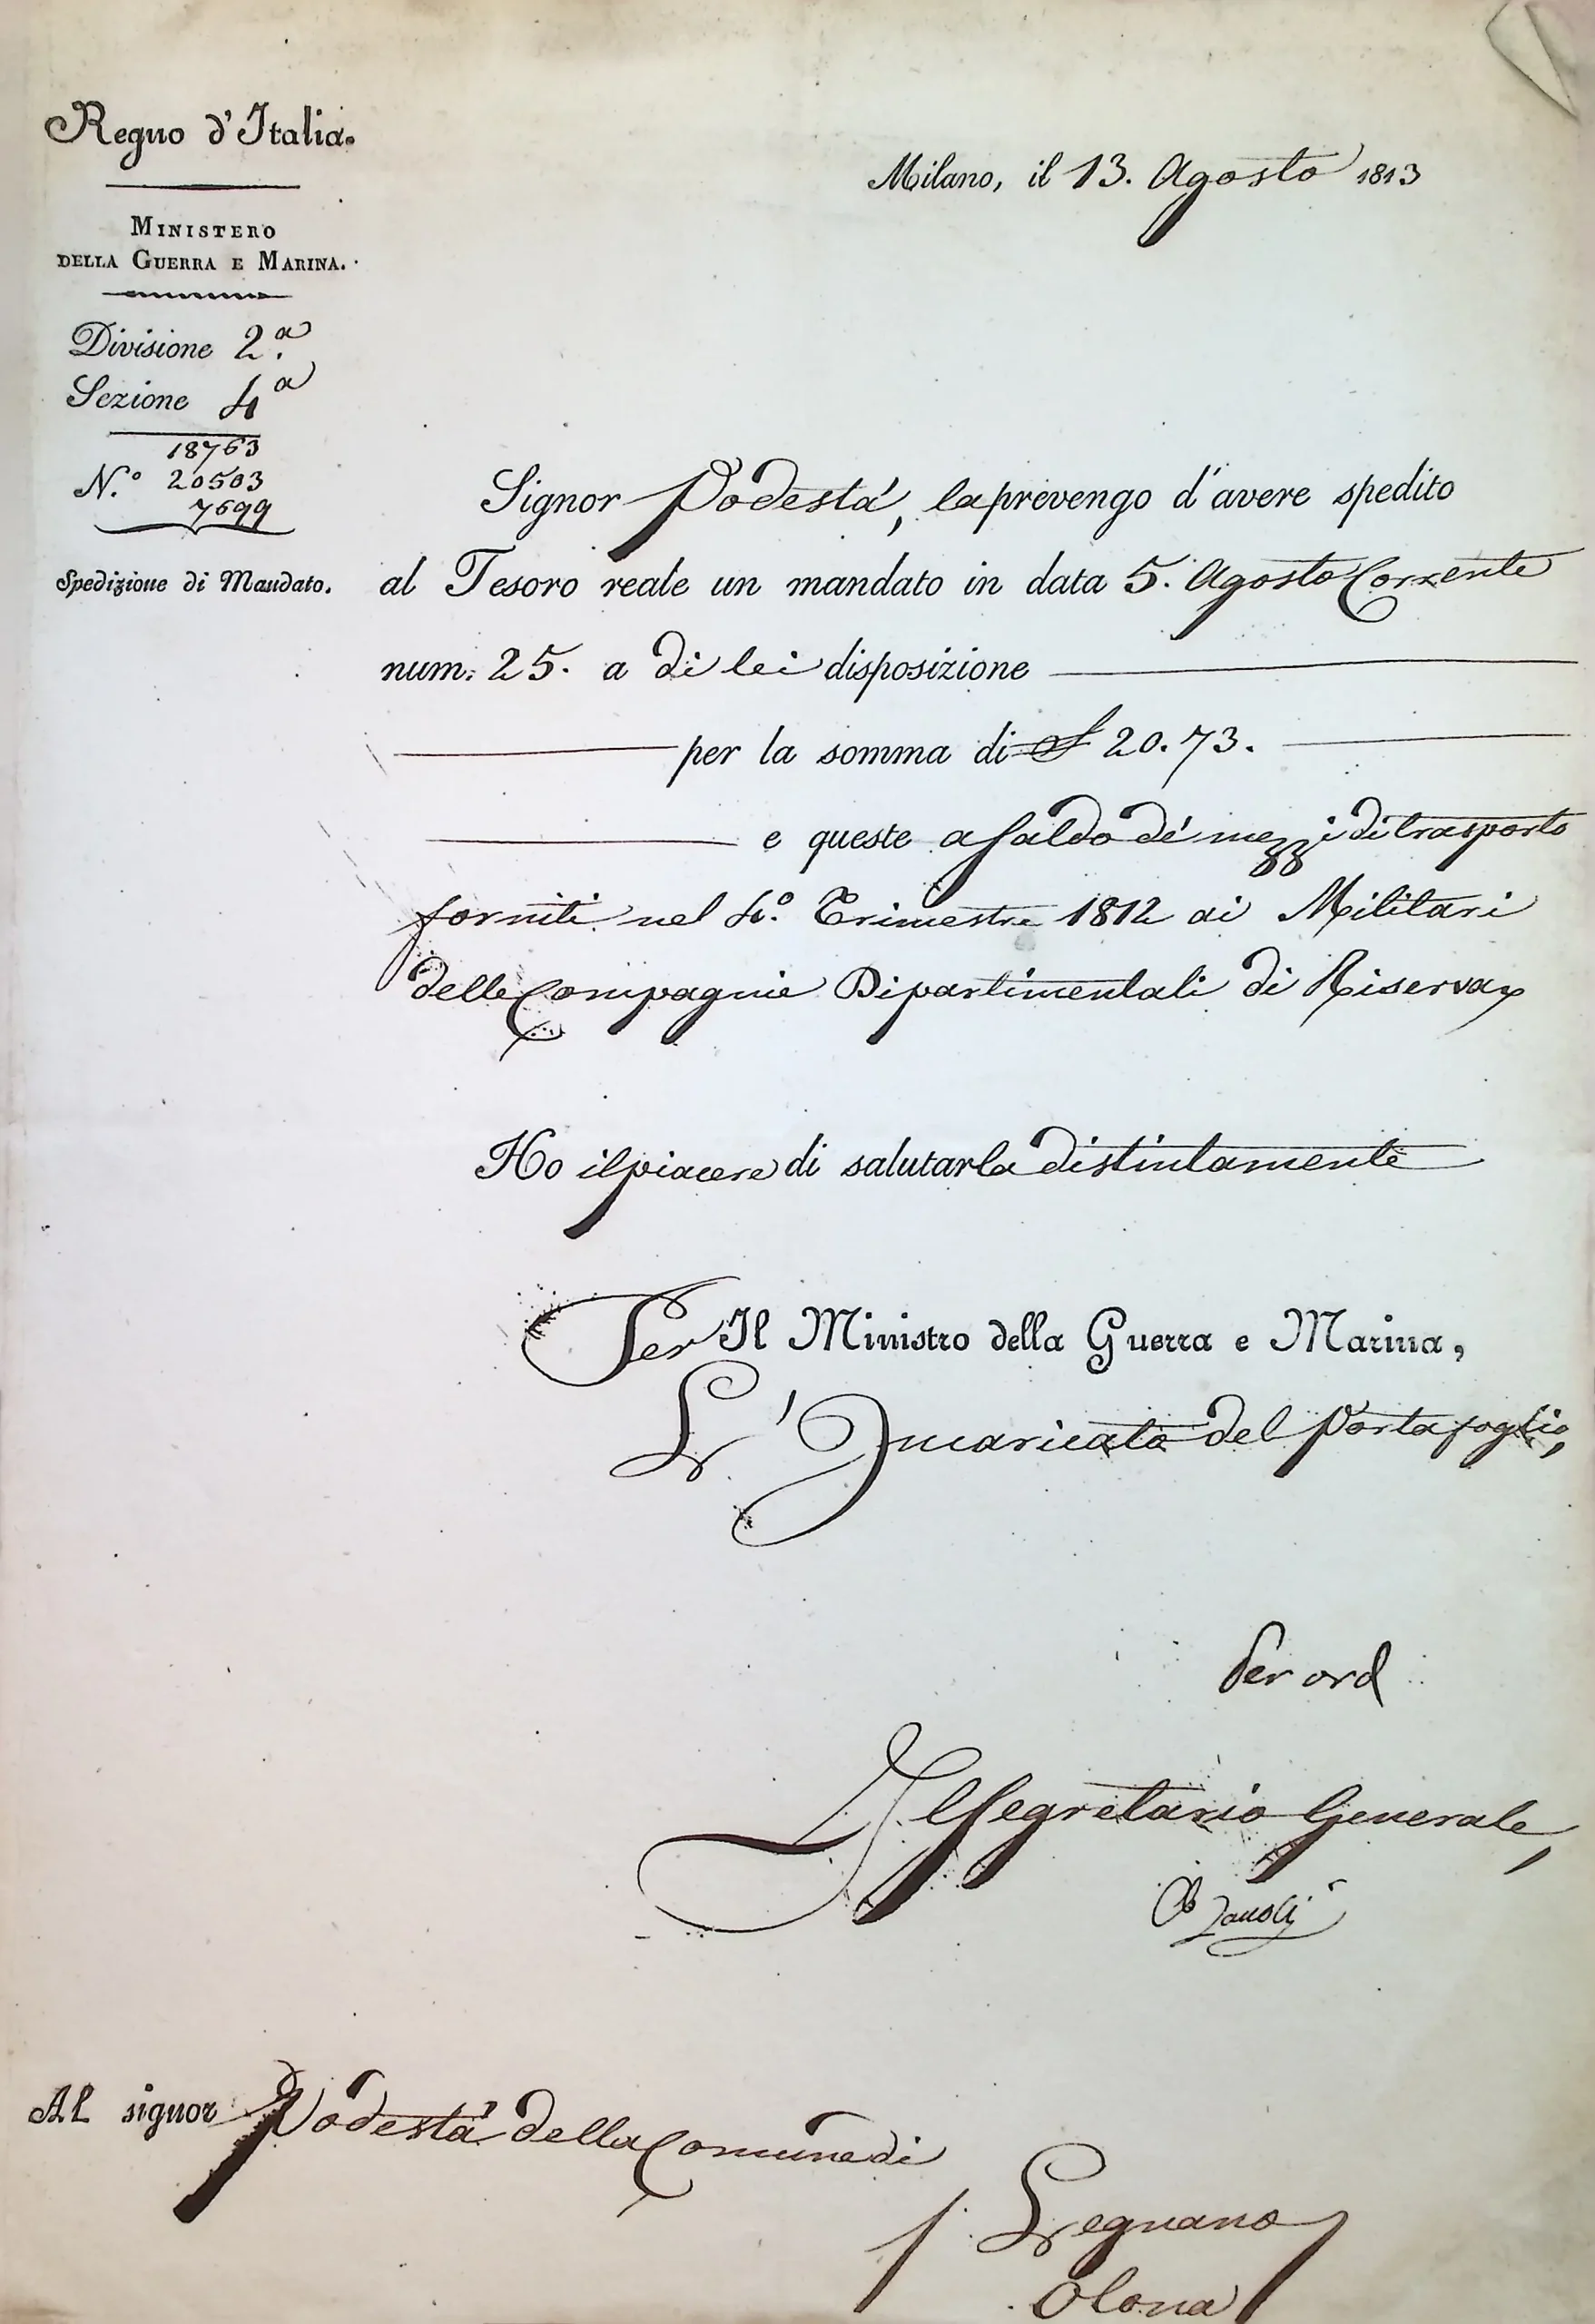 Regno d'Italia.
Milano, il 13. Agosto 1813
MINISTERO
DELLA GUERRA E MARINA.
Divisione 2.a
Sezione 4a
18763
N.° 20503
7699
Spedizione di Mandato.
Signor Podestà, la prevengo d'avere spedito
al Tesoro reale un mandato in data 5. Agosto Corrente
num. 25. a di lei disposizione
per la somma di 20.73.
e queste a saldo de' mezzi di trasporto
forniti nel 4.° Trimestre 1812 ai Militari
delle Compagnie Dipartimentali di Riserva
Ho il piacere di salutarla distintamente
Per Il Ministro della Guerra e Marina,
L'Incaricato del Portafoglio,
Per ord
Il Segretario Generale,
Zanoli
Al signor Podestà della Comune di
Legnano
Olona